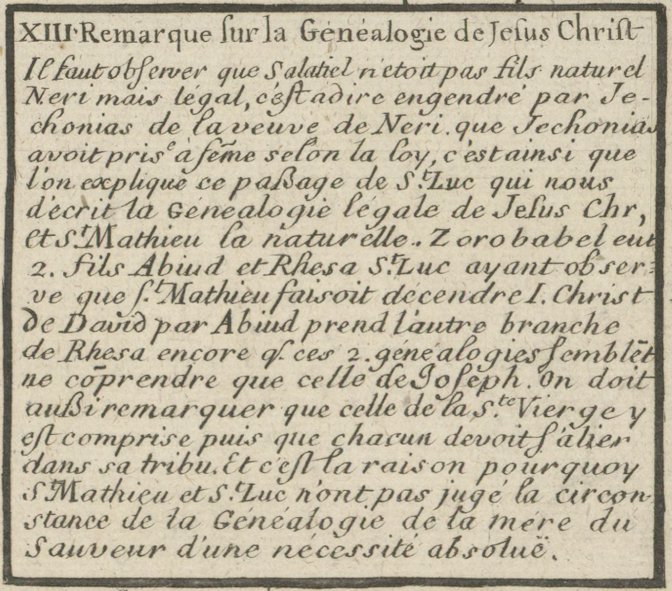 XIII. Remarque sur la Généalogie de Jesus Christ
Il faut observer que Salatiel n'etoit pas fils naturel
Neri mais légal, c'est adire engendré par Je-
chonias de la veuve de Neri. que Jechonias
avoit pris.e à fem̃e selon la loy, c'est ainsi que
l'on explique ce paßage de S.t Luc qui nous
décrit la Généalogie légale de Jesus Chr,
et S.t Mathieu la naturelle. Zorobabel eut
2. fils Abiud et Rhesa S.t Luc ayant obser-
ve que S.t Mathieu faisoit décendre I. Christ
de David par Abiud prend l'autre branche
de Rhesa encore q. ces 2. généalogies semblēt
ne cōprendre que celle de Joseph. On doit
außi remarquer que celle de la S.te Vierge y
est comprise puis que chacun devoit s'alier
dans sa tribu. Et c'est la raison pourquoy
S.t Mathieu et S.t Luc n'ont pas jugé la circon
stance de la Généalogie de la mére du
Sauveur d'une nécessité absoluë.